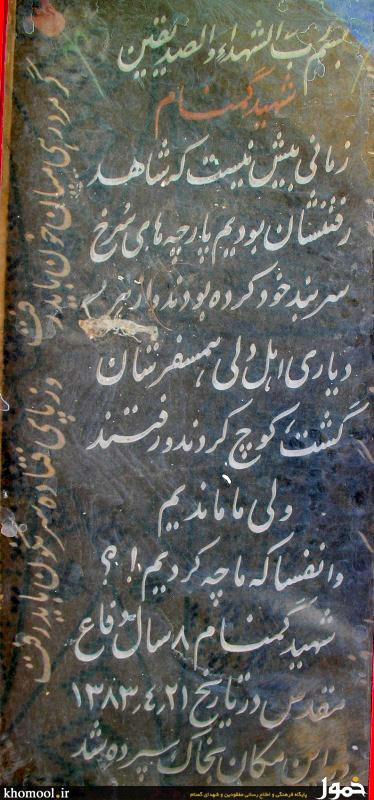 بسم رب الشهداء والصدیقین
شهید گمنام
زمانی بیش نیست که شاهد
رفتنشان بودیم پارچه های سرخ
سربند خود کرده بودند و از هر
دیاری اهل دلی همسفرشان
گشت، کوچ کردند و رفتند
ولی ما ماندیم
وانفسا که ما چه کردیم!؟
شهید گمنام ۸ سال دفاع
مقدس در تاریخ ۱۳۸۳٫۴٫۲۱
در این مکان بخاک سپرده شد
گر مرد رهی میان خون باید رفت
وز پای فتاده سرنگون باید رفت
khomool.ir
پایگاه فرهنگی و اطلاع رسانی مفقودین و شهدای گمنام
خمول